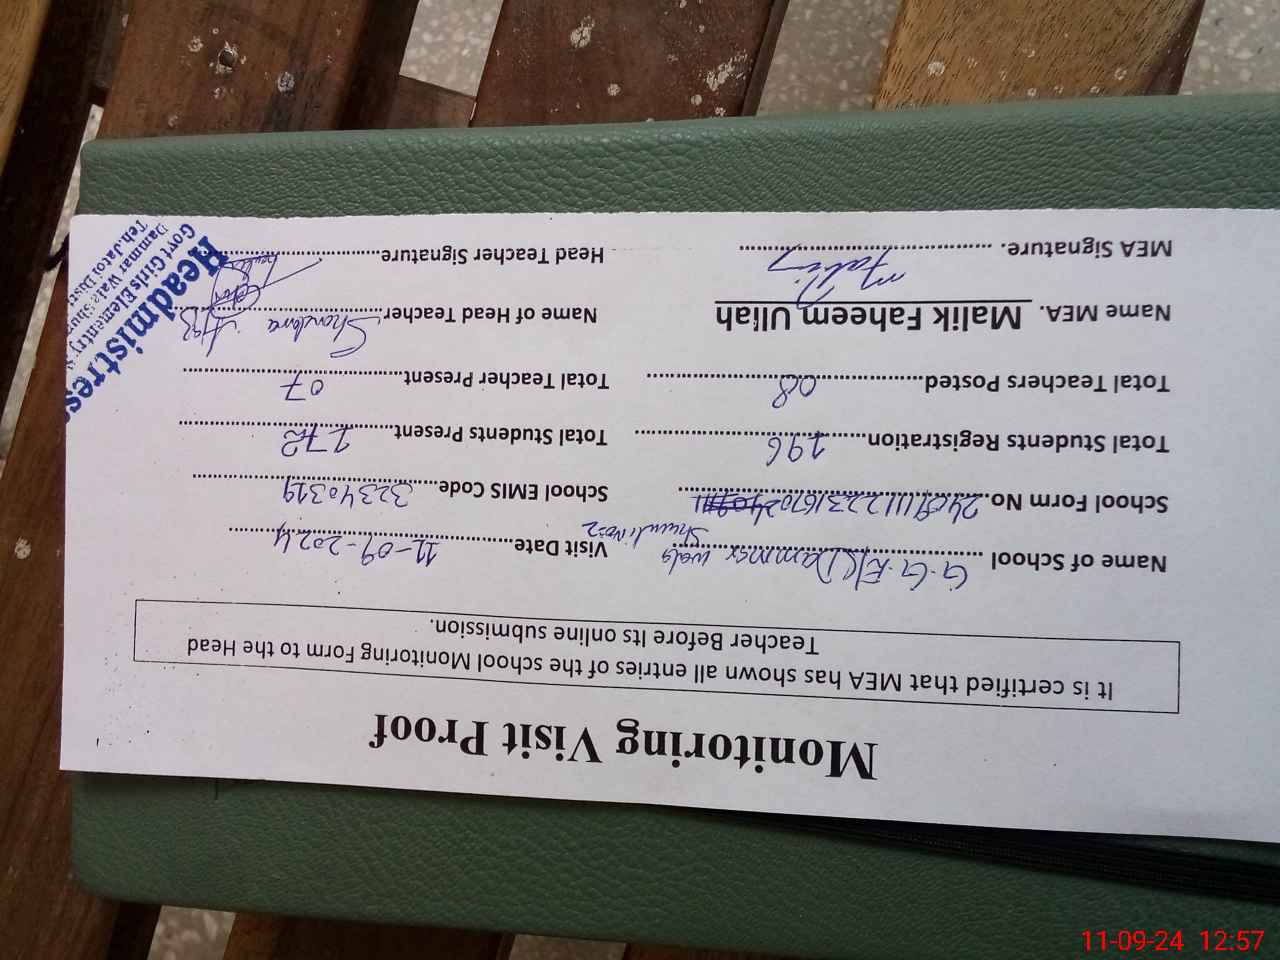 Monitoring Visit Proof
It is certified that MEA has shown all entries of the school Monitoring Form to the Head
Teacher Before Its online submission.
Name of School G.G.E/S Dammar wala Shumali No=2 Visit Date 11-09-2024
School Form No 2409111122231670 School EMIS Code 32340319
Total Students Registration 196 Total Students Present 172
Total Teachers Posted 08 Total Teacher Present 07
Name MEA. Malik Faheem Ulläh Name of Head Teacher
MEA Signature. Head Teacher Signature
Headmistress
Govt Girls Elementry
Dammar Wala Shu
Teh.Jatoi Dist
11-09-24 12:57